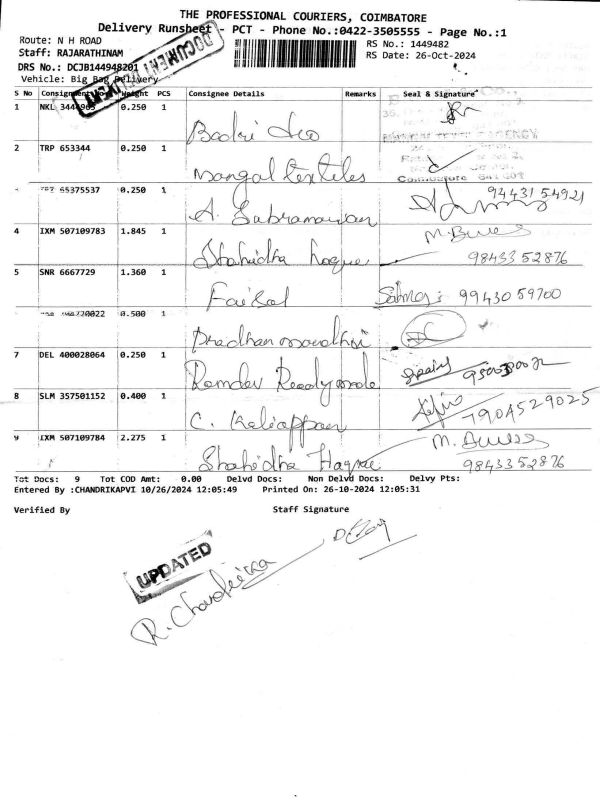 THE PROFESSIONAL COURIERS, COIMBATORE
Delivery Runsheet - PCT - Phone No.:0422-3505555 - Page No.:1
Route: N H ROAD
RS No.: 1449482
Staff: RAJARATHINAM
RS Date: 26-Oct-2024
DRS No.: DCJB144948201
Vehicle: Big Bag Delivery
DOCUMENT
S No Consignment No Weight PCS Consignee Details Remarks Seal & Signature
1 NKL 3444965 0.250 1 Badri
2 TRP 653344 0.250 1 Mangal textiles
65375537 0.250 1 A. Subramanian 94431 54921
4 IXM 507109783 1.845 1 Shahidha haque 98433 52876
5 SNR 6667729 1.360 1 Faisal 99430 59700
0.500 1 Pradhan mandhri
7 DEL 400028064 0.250 1 Ramdev Readymade
8 SLM 357501152 0.400 1 C. Kaliappan 7904529025
9 IXM 507109784 2.275 1 Shahidha Haque 98433 52876
Tot Docs: 9 Tot COD Amt: 0.00 Delvd Docs: Non Delvd Docs: Delvy Pts:
Entered By :CHANDRIKAPVI 10/26/2024 12:05:49 Printed On: 26-10-2024 12:05:31
Verified By Staff Signature
UPDATED
R. Chandrika